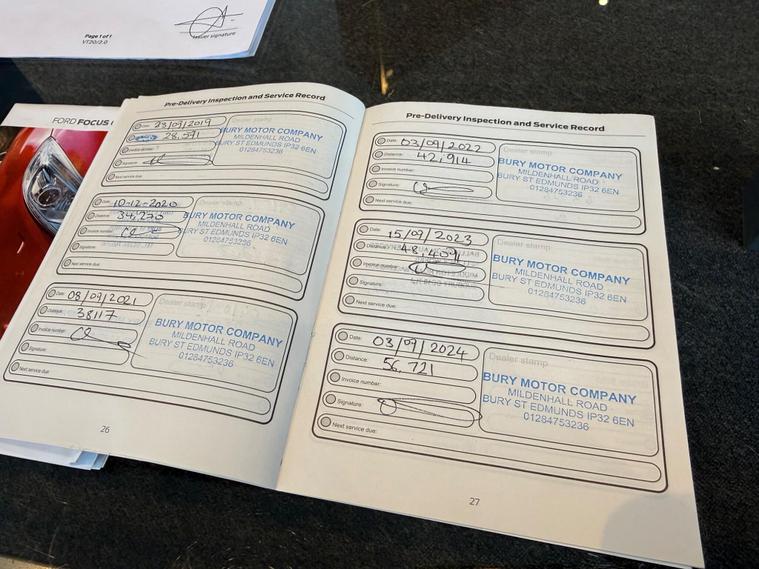 Page 1 of 1
VT20/2.0
Issuer signature
FORD FOCUS
Pre-Delivery Inspection and Service Record
Date: 23/09/2019
28,591
Signature:
Next service due:
Dealer stamp
BURY MOTOR COMPANY
MILDENHALL ROAD
BURY ST EDMUNDS IP32 6EN
01284753236
Date: 10-12-2020
Distance: 34,270
Invoice number:
Signature:
Next service due:
BURY MOTOR COMPANY
MILDENHALL ROAD
BURY ST EDMUNDS IP32 6EN
01284753236
Date: 08/09/2021
Distance: 38117
Invoice number:
Signature:
Next service due:
Dealer stamp
BURY MOTOR COMPANY
MILDENHALL ROAD
BURY ST EDMUNDS IP32 6EN
01284753236
26
Pre-Delivery Inspection and Service Record
Date: 03/09/2022
Distance: 42,914
Invoice number:
Signature:
Next service due:
Dealer stamp
BURY MOTOR COMPANY
MILDENHALL ROAD
BURY ST EDMUNDS IP32 6EN
01284753236
Date: 15/09/2023
Distance: 48,409
Invoice number:
Signature:
Next service due:
Dealer stamp
BURY MOTOR COMPANY
MILDENHALL ROAD
BURY ST EDMUNDS IP32 6EN
01284753236
Date: 03/09/2024
Distance: 56,721
Invoice number:
Signature:
Next service due:
Dealer stamp
BURY MOTOR COMPANY
MILDENHALL ROAD
BURY ST EDMUNDS IP32 6EN
01284753236
27